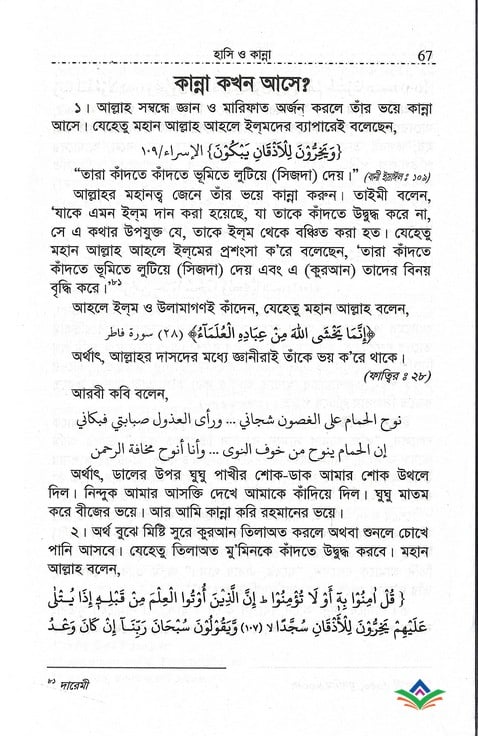 হাসি ও কান্না 67
কান্না কখন আসে?
১। আল্লাহ সম্বন্ধে জ্ঞান ও মারিফাত অর্জন করলে তাঁর ভয়ে কান্না
আসে। যেহেতু মহান আল্লাহ আহলে ইল্‌মদের ব্যাপারেই বলেছেন,
{وَيَخِرُّونَ لِلْأَذْقَانِ يَبْكُونَ} الإسراء/١٠٩
“তারা কাঁদতে কাঁদতে ভূমিতে লুটিয়ে (সিজদা) দেয়।” (বানী ইস্রাঈল : ১০৯)
আল্লাহর মহানত্ব জেনে তাঁর ভয়ে কান্না করুন। তাইমী বলেন,
‘যাকে এমন ইল্‌ম দান করা হয়েছে, যা তাকে কাঁদতে উদ্বুদ্ধ করে না,
সে এ কথার উপযুক্ত যে, তাকে ইল্‌ম থেকে বঞ্চিত করা হত। যেহেতু
মহান আল্লাহ আহলে ইল্‌মের প্রশংসা ক’রে বলেছেন, ‘তারা কাঁদতে
কাঁদতে ভূমিতে লুটিয়ে (সিজদা) দেয় এবং এ (কুরআন) তাদের বিনয়
বৃদ্ধি করে।’৮১
আহলে ইল্‌ম ও উলামাগণই কাঁদেন, যেহেতু মহান আল্লাহ বলেন,
﴿إِنَّمَا يَخْشَى اللَّهَ مِنْ عِبَادِهِ الْعُلَمَاءُ﴾ (٢٨) سورة فاطر
অর্থাৎ, আল্লাহর দাসদের মধ্যে জ্ঞানীরাই তাঁকে ভয় ক’রে থাকে।
(ফাত্বির : ২৮)
আরবী কবি বলেন,
نوح الحمام على الغصون شجاني ... ورأى العذول صبابتي فبكاني
إن الحمام ينوح من خوف النوى ... وأنا أنوح مخافة الرحمن
অর্থাৎ, ডালের উপর ঘুঘু পাখীর শোক-ডাক আমার শোক উথলে
দিল। নিন্দুক আমার আসক্তি দেখে আমাকে কাঁদিয়ে দিল। ঘুঘু মাতম
করে বীজের ভয়ে। আর আমি কান্না করি রহমানের ভয়ে।
২। অর্থ বুঝে মিষ্টি সুরে কুরআন তিলাঅত করলে অথবা শুনলে চোখে
পানি আসবে। যেহেতু তিলাঅত মু’মিনকে কাঁদতে উদ্বুদ্ধ করবে। মহান
আল্লাহ বলেন,
{ قُلْ اٰمِنُوْا بِهٖٓ أَوْ لَا تُؤْمِنُوْا ط إِنَّ الَّذِيْنَ أُوْتُوا الْعِلْمَ مِنْ قَبْلِهٖٓ إِذَا يُتْلٰى
عَلَيْهِمْ يَخِرُّوْنَ لِلْأَذْقَانِ سُجَّدًا لا (١٠٧) وَّيَقُوْلُوْنَ سُبْحَانَ رَبِّنَآ إِنْ كَانَ وَعْدُ
৮১ দারেমী